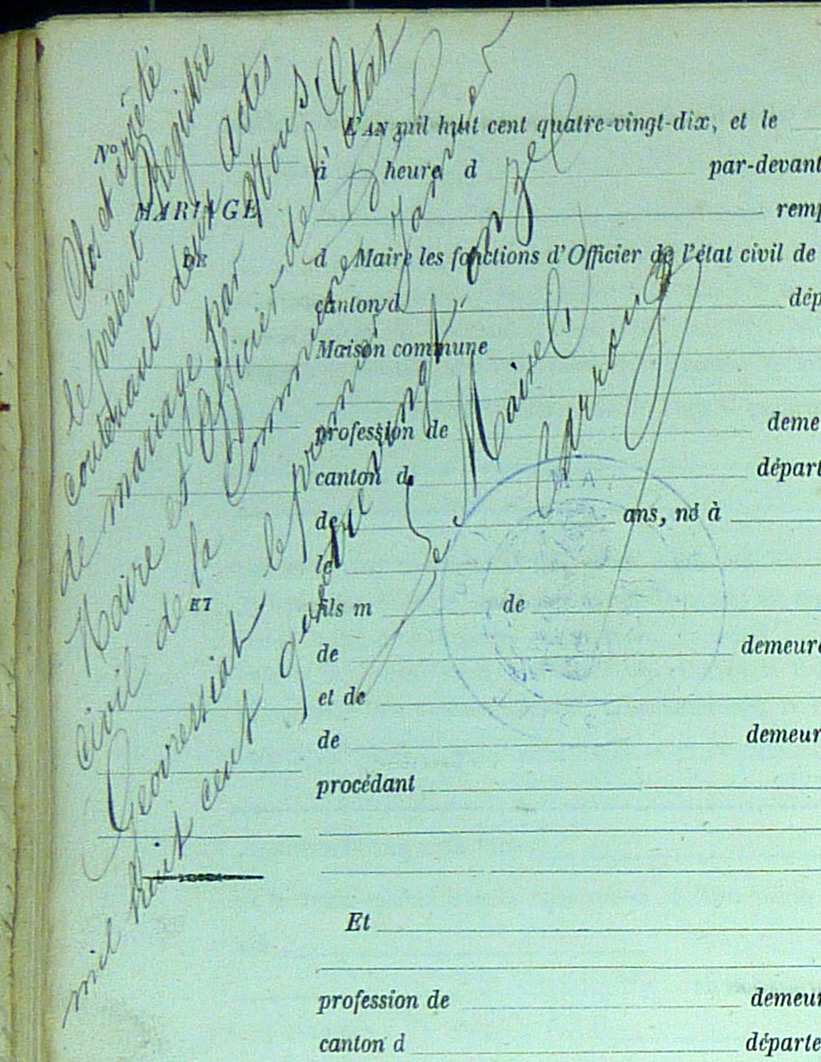 Clos et arrêté
le présent Registre
contenant deux actes
de mariage par Nous
Maire et Officier de l'Etat
civil de la Commune de
Geovressiat le premier Janvier
mil huit cent quatre vingt onze
Le Maire
Carronz
No
MARIAGE
DE
ET
L'AN mil huit cent quatre-vingt-dix, et le
à heure d par-devant
remp
d Maire les fonctions d'Officier de l'état civil de
canton d dép
Maison commune
profession de deme
canton d départ
de ans, né à
le
fils m de
de demeure
et de
de demeur
procédant
Et
profession de demeur
canton d départe